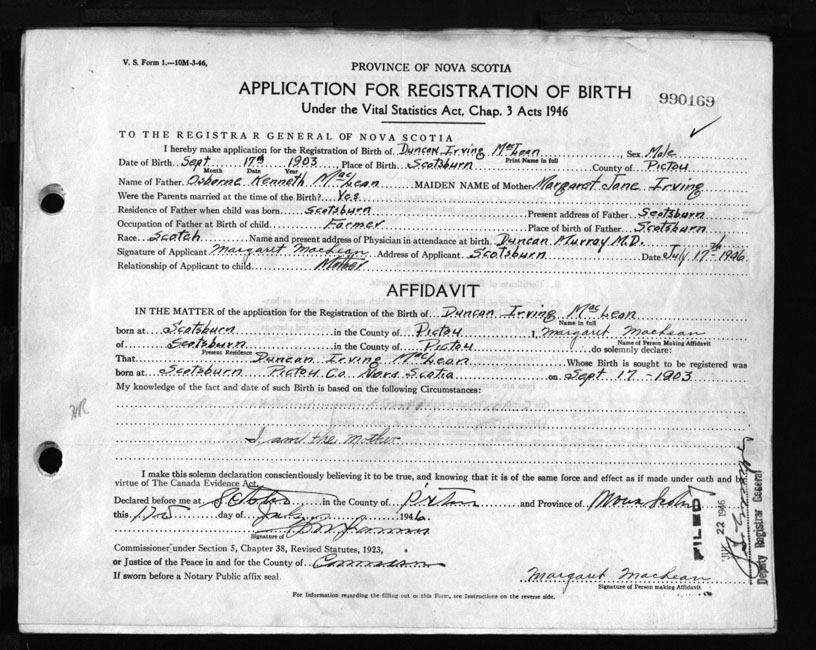 V. S. Form 1.—10M-3-46.
PROVINCE OF NOVA SCOTIA
APPLICATION FOR REGISTRATION OF BIRTH
990169
Under the Vital Statistics Act, Chap. 3 Acts 1946
TO THE REGISTRAR GENERAL OF NOVA SCOTIA
I hereby make application for the Registration of Birth of Duncan Irving MacLean Sex Male
Print Name in full
Date of Birth Sept 17th 1903 Place of Birth Scotsburn County of Pictou
Month Date Year
Name of Father Osborne Kenneth MacLean MAIDEN NAME of Mother Margaret Jane Irving
Were the Parents married at the time of the Birth? Yes
Residence of Father when child was born Scotsburn Present address of Father Scotsburn
Occupation of Father at Birth of child Farmer Place of birth of Father Scotsburn
Race Scotch Name and present address of Physician in attendance at birth Duncan Murray M.D.
Signature of Applicant Margaret MacLean Address of Applicant Scotsburn Date July 17th 1946
Relationship of Applicant to child Mother
AFFIDAVIT
IN THE MATTER of the application for the Registration of the Birth of Duncan Irving MacLean
Name in full
born at Scotsburn in the County of Pictou I, Margaret MacLean
Name of Person Making Affidavit
of Scotsburn in the County of Pictou do solemnly declare:
Present Residence
That Duncan Irving MacLean Whose Birth is sought to be registered was
born at Scotsburn Pictou Co. Nova Scotia on Sept 17-1903
My knowledge of the fact and date of such Birth is based on the following Circumstances:
I am the mother
I make this solemn declaration conscientiously believing it to be true, and knowing that it is of the same force and effect as if made under oath and by
virtue of The Canada Evidence Act.
Declared before me at in the County of Pictou and Province of Nova Scotia
this day of July 1946
Signature of
Commissioner under Section 5, Chapter 38, Revised Statutes, 1923,
or Justice of the Peace in and for the County of
If sworn before a Notary Public affix seal.
Margaret MacLean
Signature of Person making Affidavit
For Information regarding the filling out of this Form, see Instructions on the reverse side.
FILED
22 1946
Deputy Registrar General